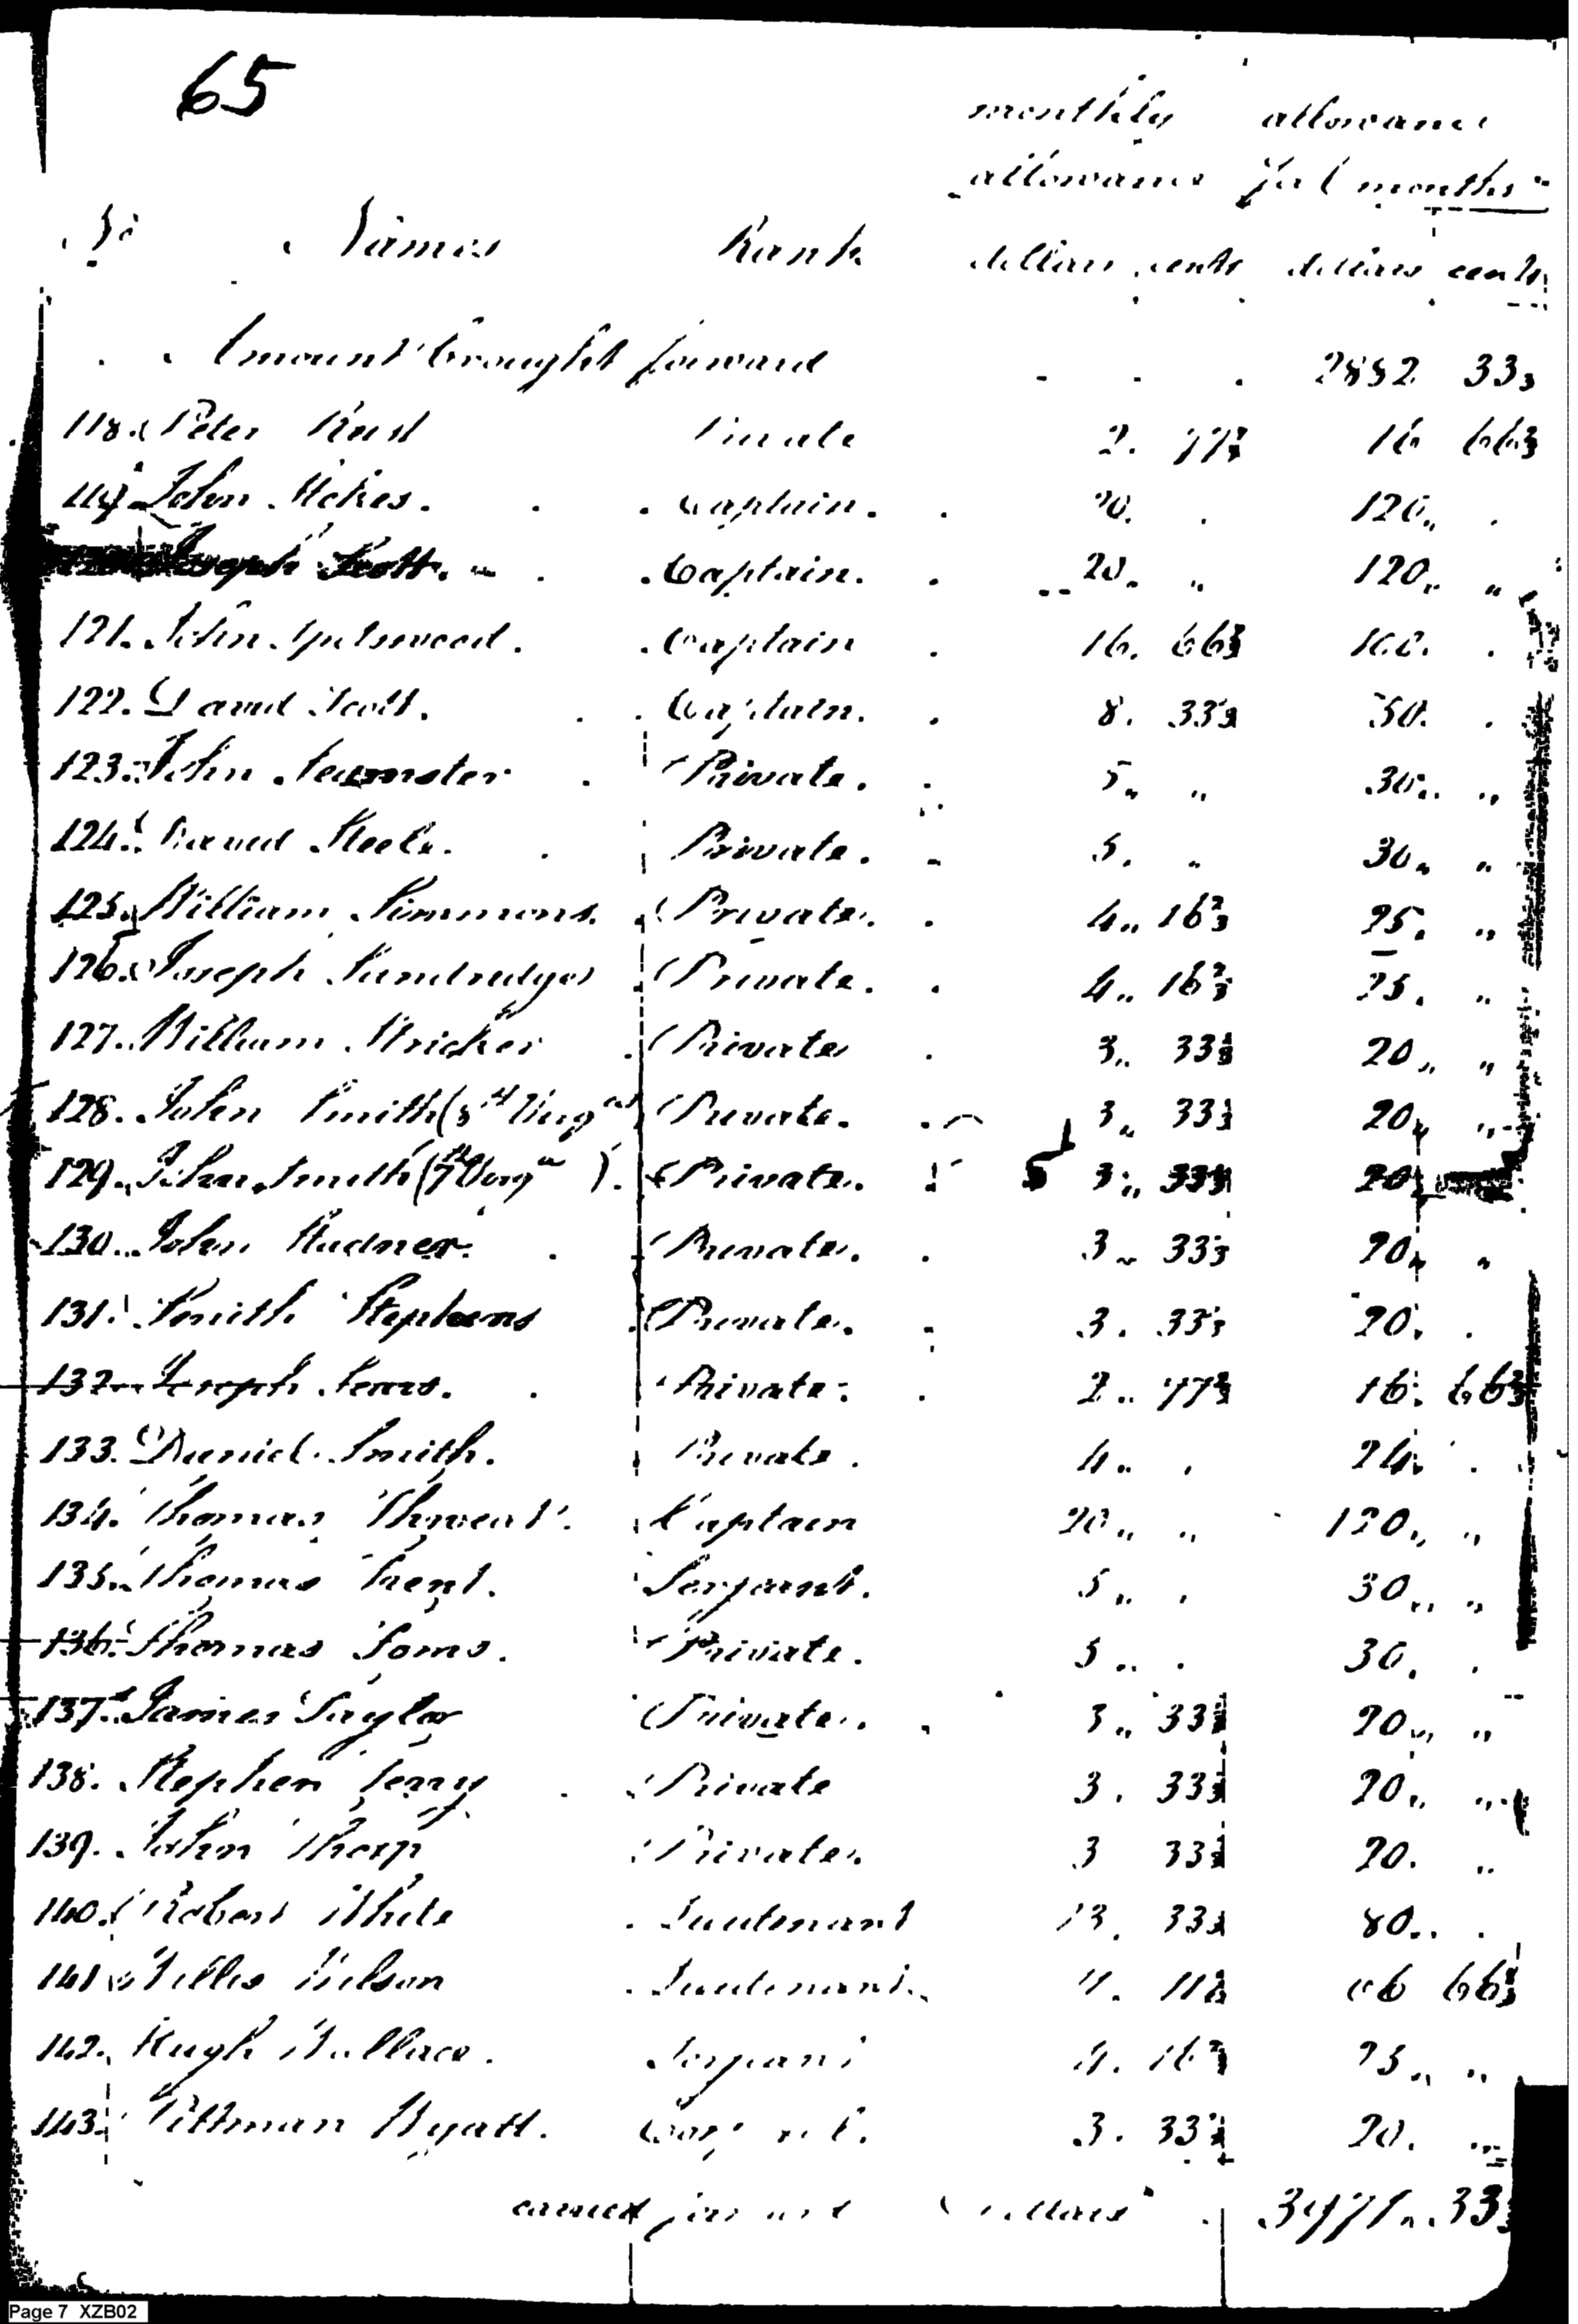 65
monthly allowance
allowance for 6 months
No Names Rank dollars cents dollars cents
Amount brought forward - . . 2852 33⅓
118. Peter Rust Private 2. 77⅔ 16 66⅔
119. John Stokes. Captain. 20. . 120„ .
Joseph Scott. Captain. 20. „ 120„ „
121. John Spotswood. Captain 16. 66⅔ 100. .
122. David Scott. Captain. 8. 33⅓ 50. .
123. John Seamster Private. 5„ „ 30„ „
124. David Steele. Private. 5. „ 30„ „
125. William Simmons. Private. 4„ 16⅔ 25. „
126. Joseph Private. 4„ 16⅔ 25. „
127. William Stricker Private 3„ 33⅓ 20„ „
128. John Smith (3d Virga) Private. 3„ 33⅓ 20„ „
129. John Smith (7th Virga). Private. 3„ 33⅓ 20
130. John Studner. Private. 3„ 33⅓ 20„ „
131. Smith Stephens Private. 3. 33⅓ 20. .
132. Joseph Sears. Private. 2„ 77⅔ 16. 66⅔
133. Daniel Smith. Private. 4„ . 24. .
134. Thomas Thweat. Captain 20„ „ 120„ „
135. Thomas Trent. Serjeant. 5„ . 30„ „
136. Thomas Toms. Private. 5„ . 30. .
137. James Taylor Private. 3„ 33⅓ 20„ „
138. Stephen Terry Private 3. 33⅓ 20„ „
139. John Thorp Private. 3 33⅓ 20. „
140. Robert White Lieutenant 13. 33⅓ 80„ .
141. Willis Wilson Lieutenant. 11. 66⅔
142. Hugh Wallace. Serjeant 4. 16⅔ 25„ „
143. Pittman Wyatt. Corporal. 3. 33⅓ 20. „
carried forward dollars 3971„ 33⅓
Page 7 XZB02